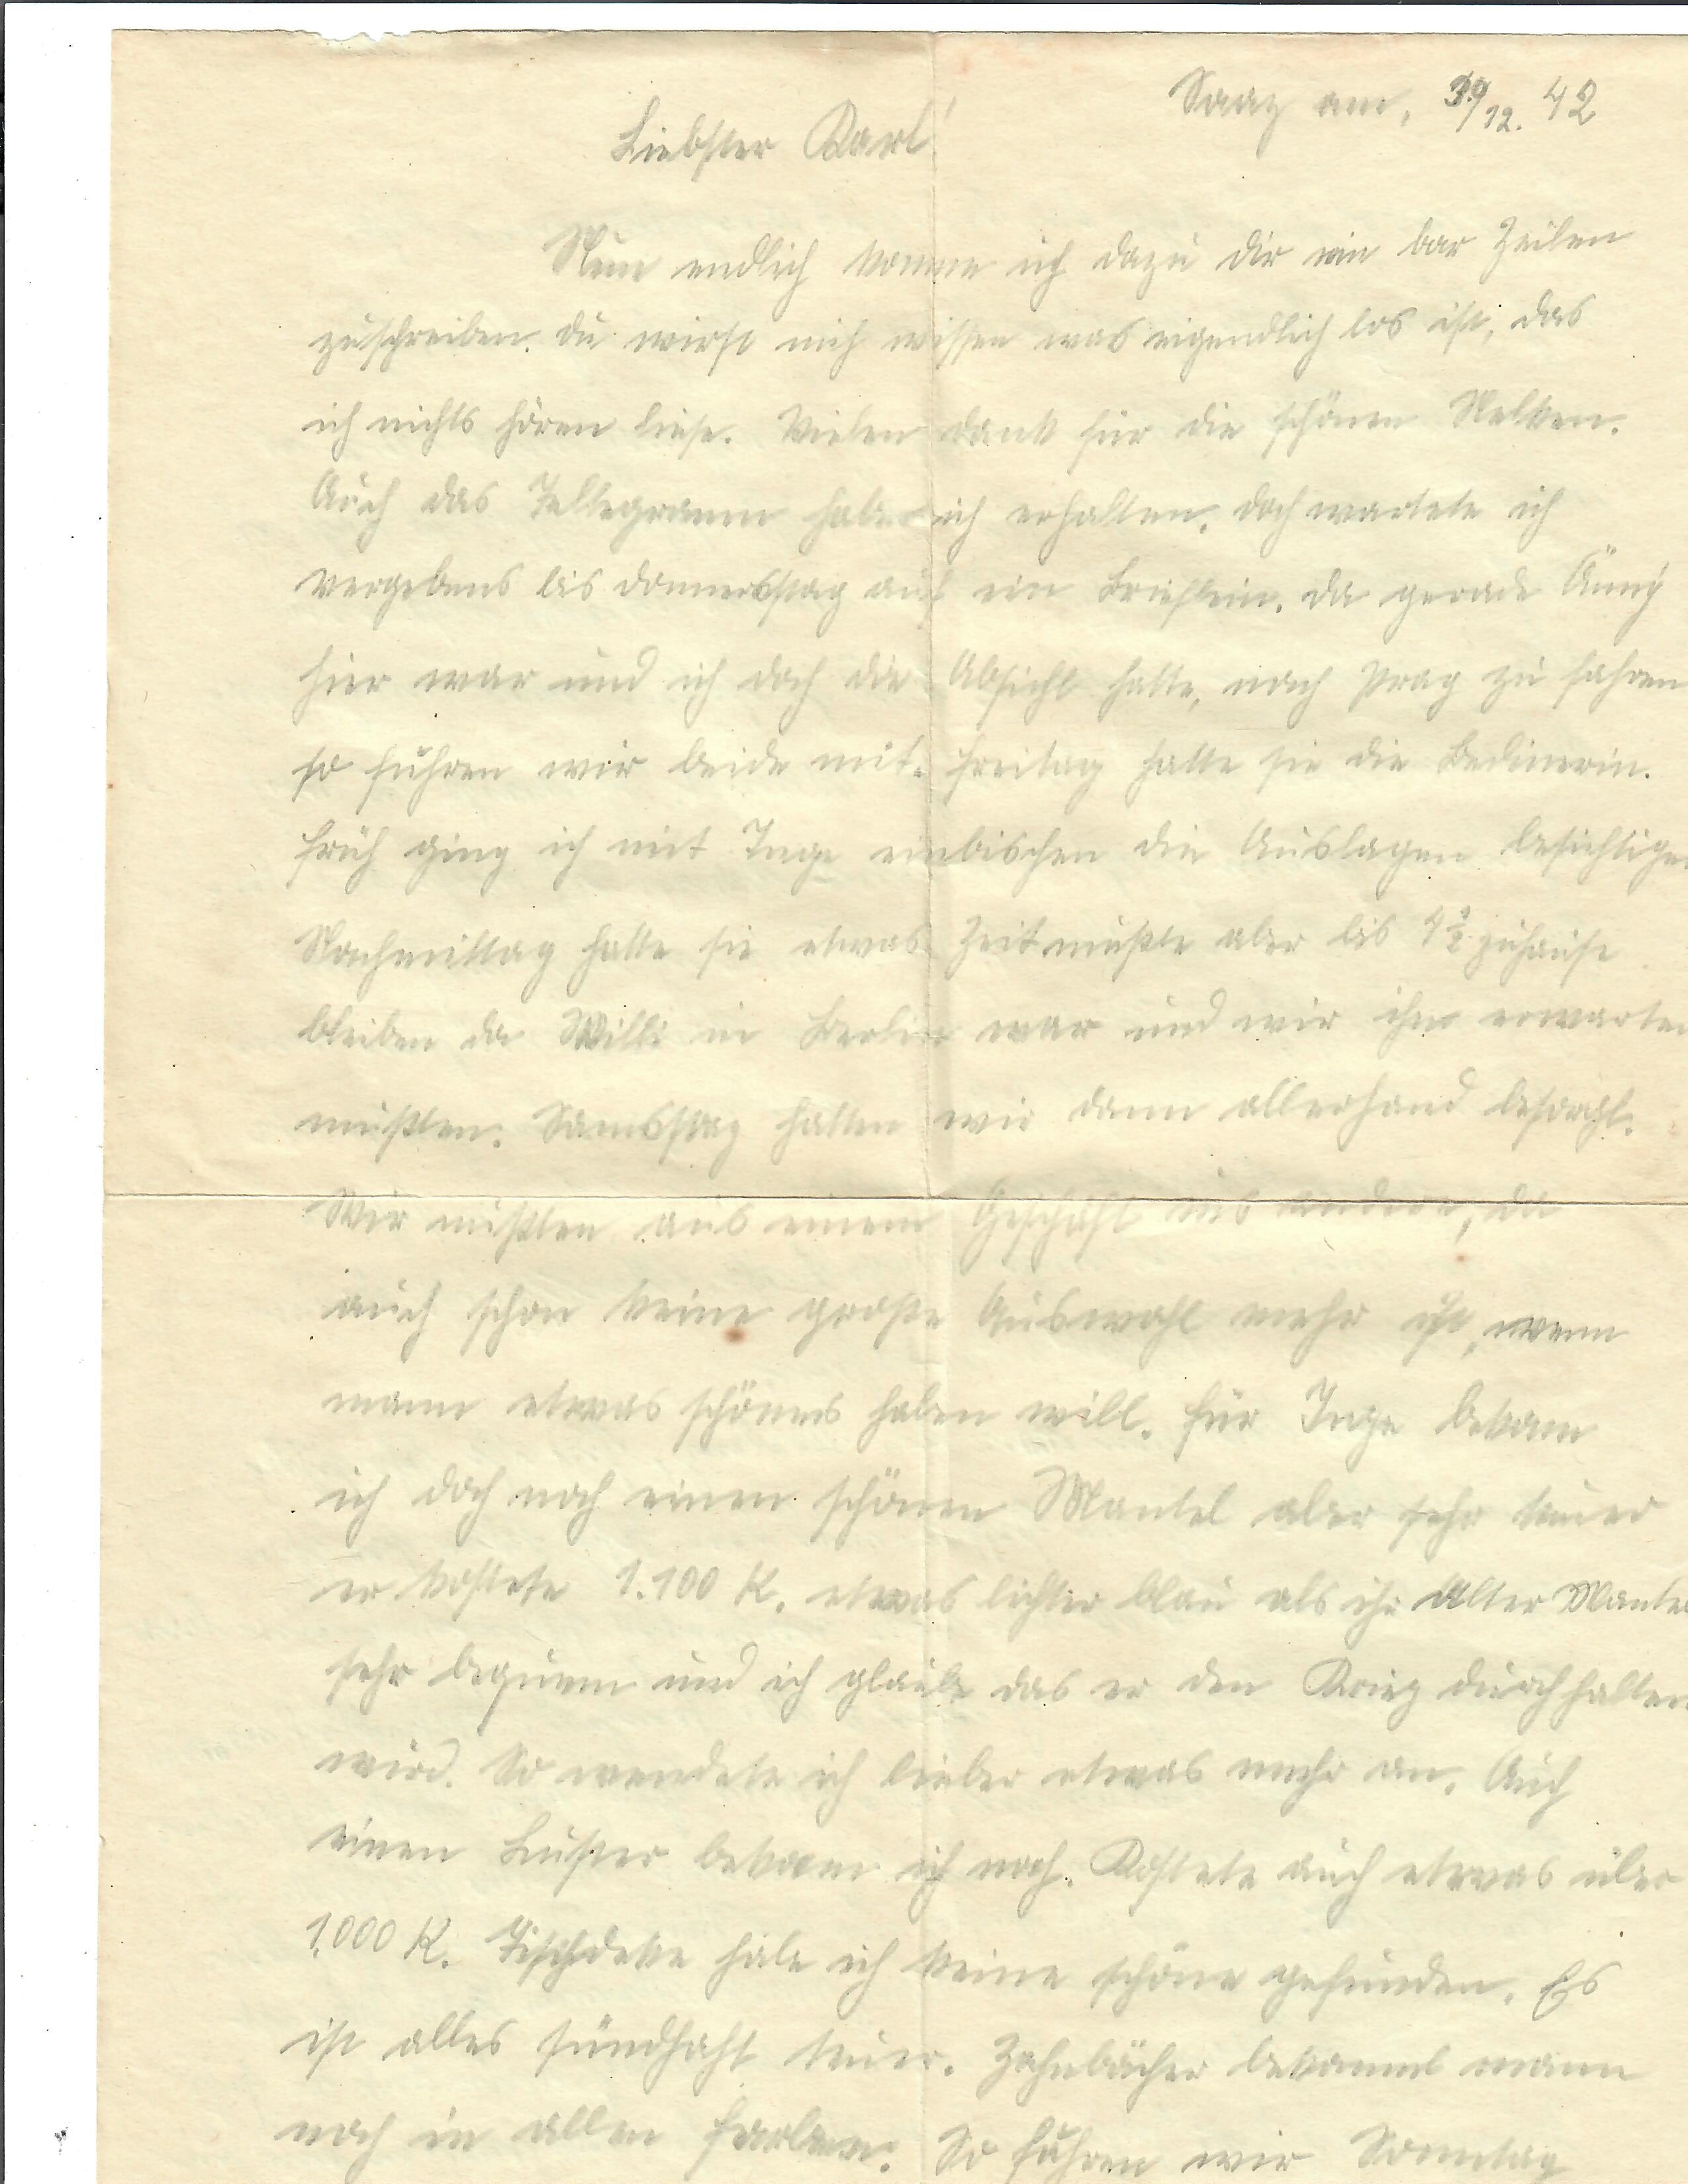 Saaz am, 30/12. 42
Liebster Karl!
Nun endlich komme ich dazu dir ein bar Zeilen
zuschreiben. Du wirst nich wissen was eigendlich los ist, das
ich nichts hören liese. Vielen dank für die schönen Nelken.
Auch das Tellegramm habe ich erhalten. doch wartete ich
vergebens bis Donnerstag auf ein Brieflein. Da gerade Änny
hier war und ich doch die Absicht hatte, nach Prag zu fahren
so fuhren wir beide mit. Freitag hatte sie die Bedinerin.
Früh ging ich mit Inge einbischen die Auslagen besichtigen
Nachmittag hatte sie etwas Zeit mußte aber bis zuhause
bleiben da Willi in Berlin war und wir ihn erwarten
mußten. Samsstag hatten wir dann allerhand besorgt.
Wir mußten aus einem Geschäft ins andere, da
auch schon keine große Auswahl mehr ist, wenn
mann etwas schönes haben will. Für Inge bekam
ich doch noch einen schönen Mantel aber sehr teuer
er kostete 1.100 K. etwas lichter blau als ihr alter Mantel
sehr bequem und ich glaube das er den Krieg durchhalten
wird. So wendete ich lieber etwas mehr an. Auch
einen Luster bekam ich noch. Kostete auch etwas über
1.000 K. Tischdeke habe ich keine schöne gefunden. Es
ist alles sündhaft teuer. Zahnbächer bekommt mann
noch in allen Farben. So fuhren wir Sonntag